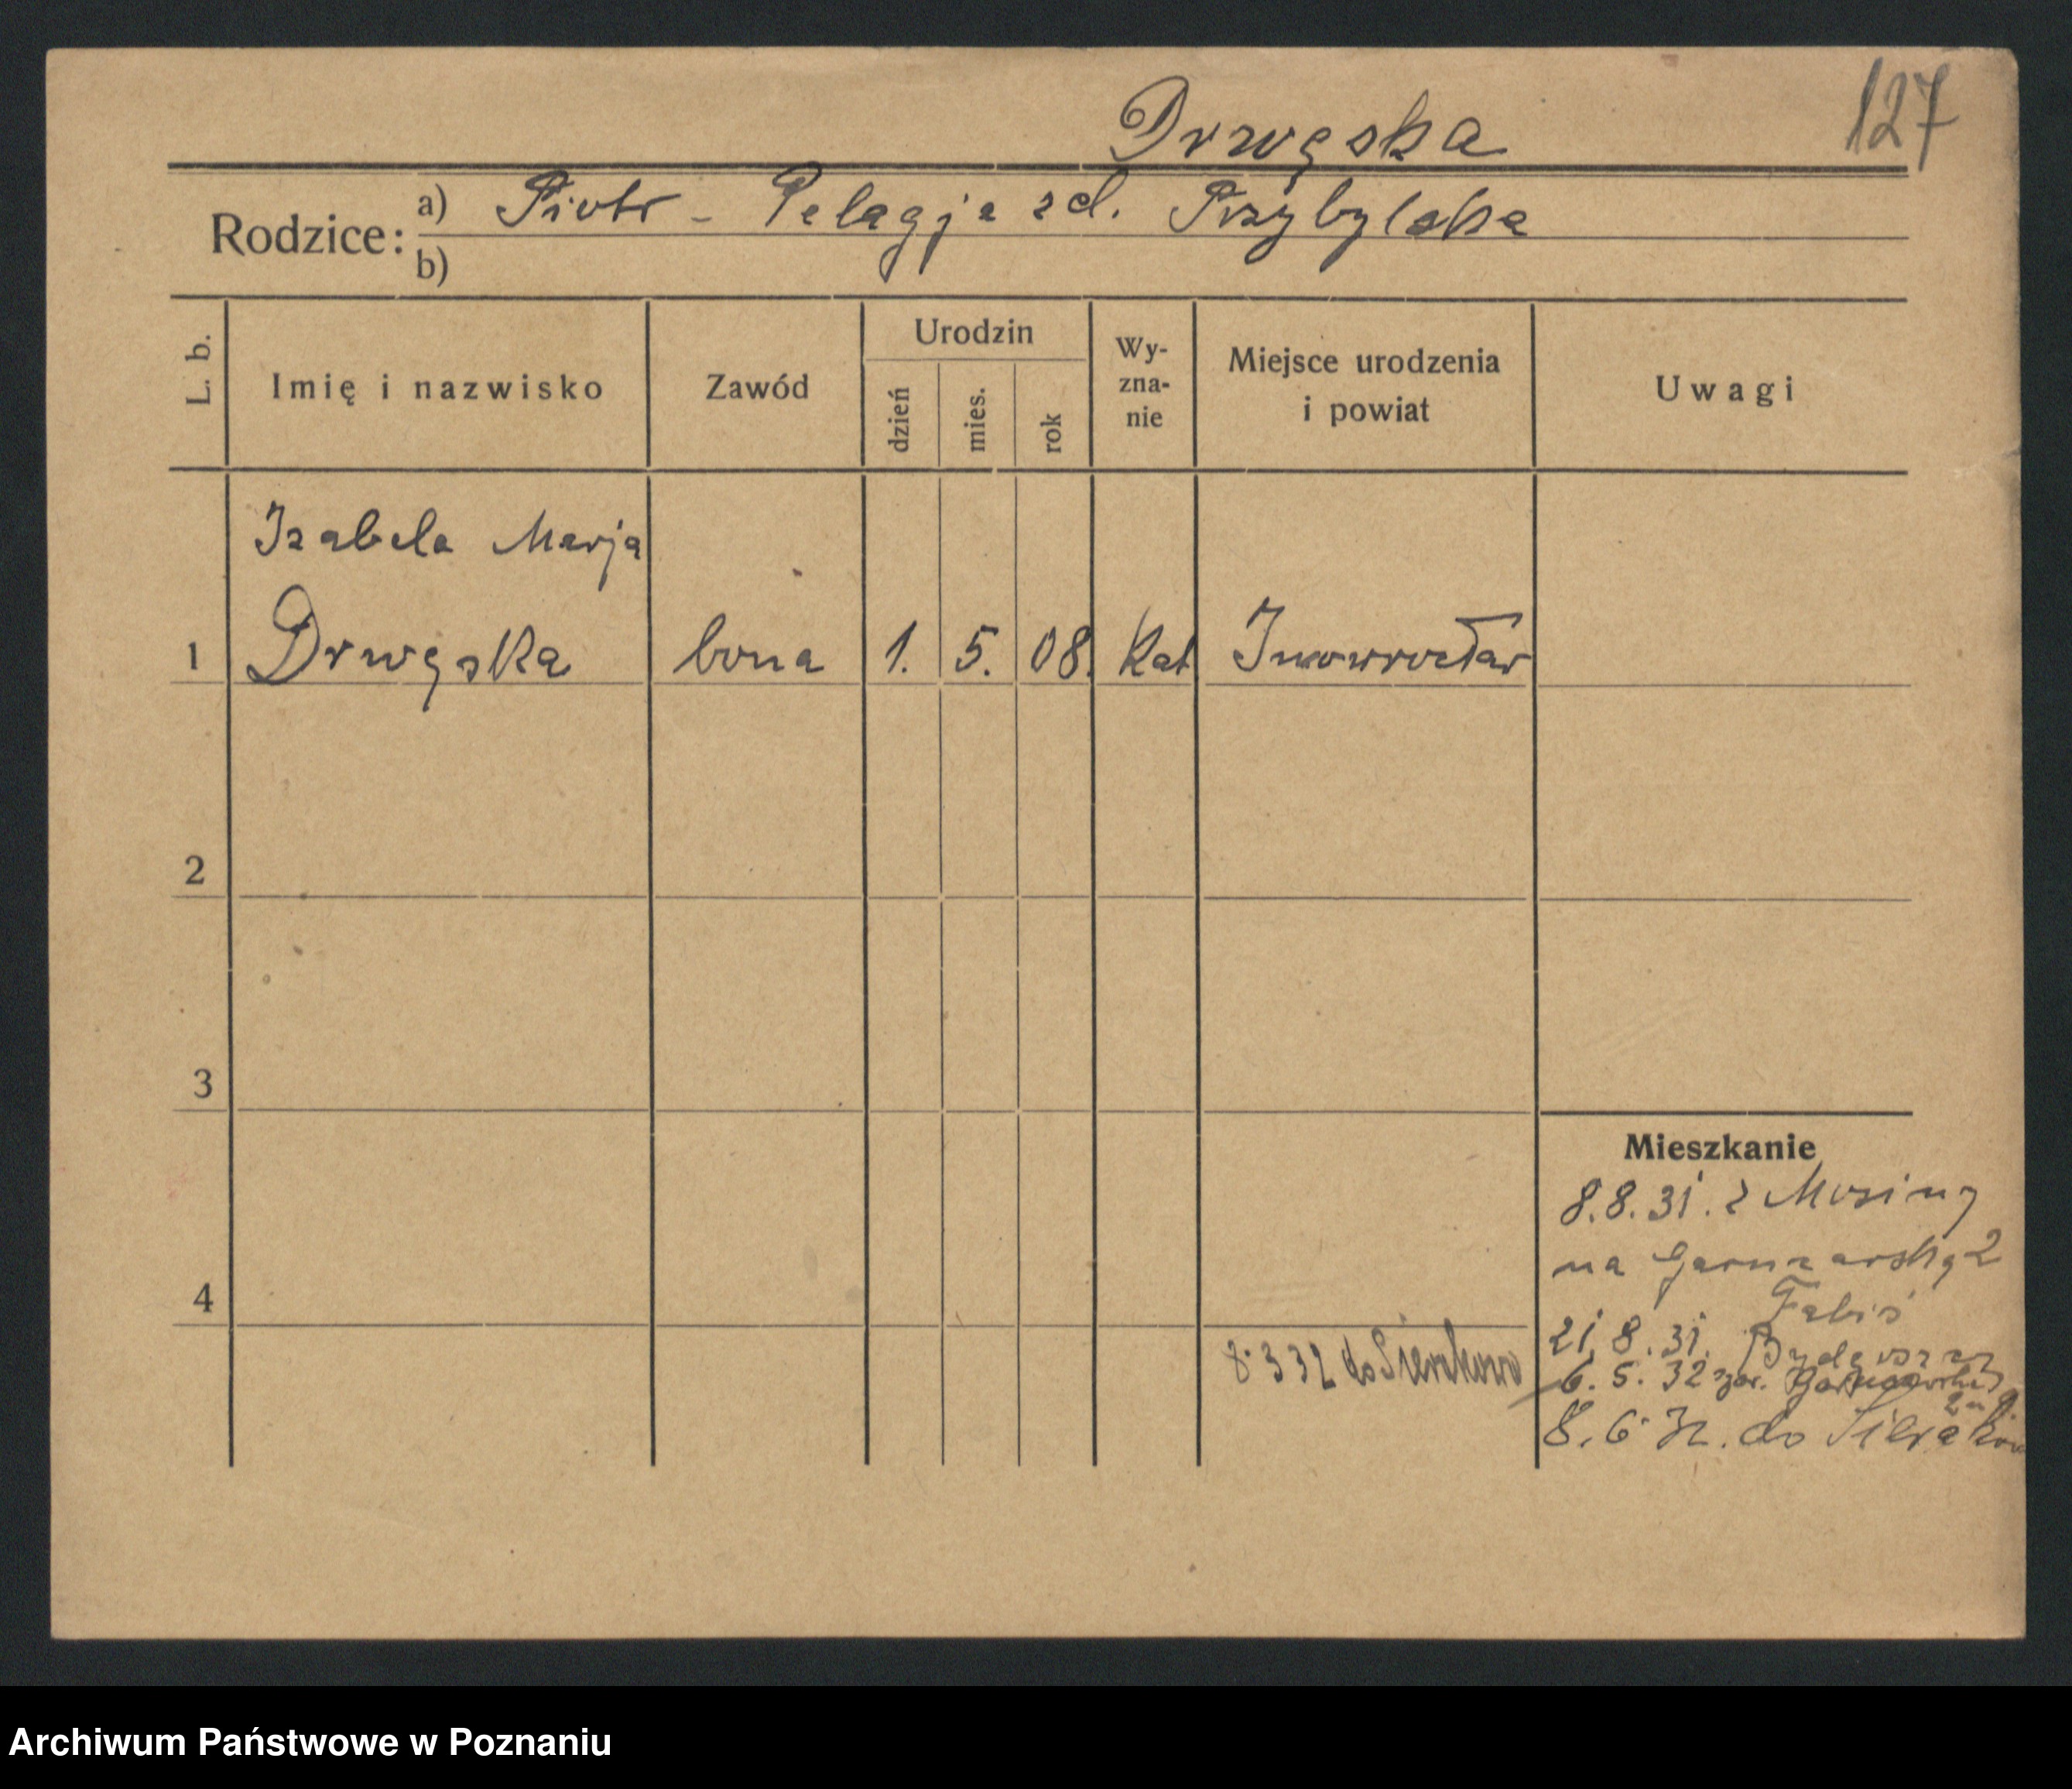 127
Drwęska
Rodzice: a) Piotr - Pelagja zd. Przybylska
b)
L. b. Imię i nazwisko Zawód Urodzin dzień mies. rok Wy-zna-nie Miejsce urodzenia i powiat Uwagi
Izabela Marja
1 Drwęska bona 1. 5. 08. Kat Inowrocław
2
3
Mieszkanie
8.8.31. z Mosiny
na Garncarską 2
4 Fabiś
21.8.31. Bydgoszcz
8.3 32 do Sierakowa
6.5.32 Garncarska
2
8.6.32. do Sieraków
Archiwum Państwowe w Poznaniu